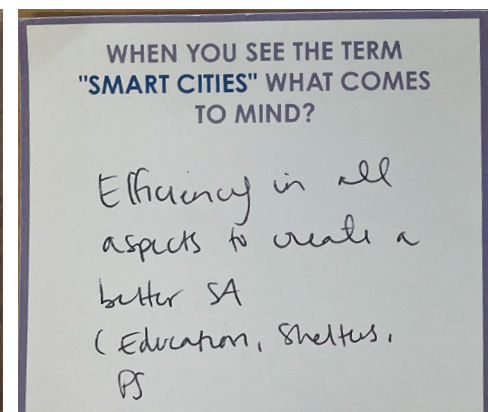 WHEN YOU SEE THE TERM
"SMART CITIES" WHAT COMES
TO MIND?
Efficiency in all
aspects to create a
better SA
(Education, Shelters,
PS